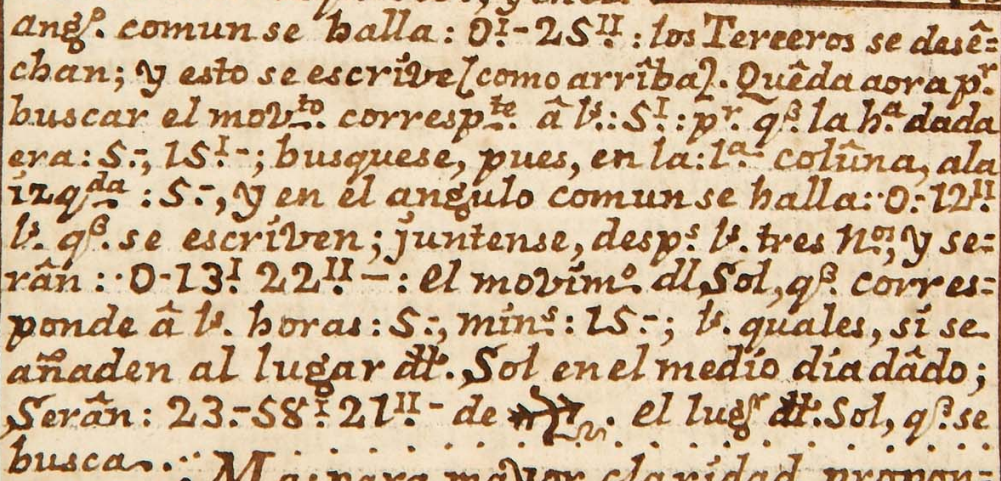 angº. comun se halla: 0ᴵ-25ᴵᴵ: los Terceros se desê=
chan; y esto se escrive [como arrîba]. Quêda aora pʳ
buscar el movᵗᵒ. correspᵗᵉ. â lˢ.: 5ᴵ: pʳ. qᵉ. la hᵃ. dada
era: 5-, 15ᴵ-; busquese, pues, en la: 1ᵃ- colûna, ala
izqᵈᵃ: 5-, y en el angulo comun se halla: 0-12ᴵᴵ
lˢ. qᵉ. se escriven; juntense, despˢ. lˢ. tres Nᵒˢ; y se=
rân: 0-13ᴵ. 22ᴵᴵ-: el movimº. dl Sol, qᵉ. corres=
ponde â lˢ. horas: 5-, minˢ: 15-; lˢ. quales, si se
añaden al lugar dl. Sol en el medio dia dâdo;
Serân: 23-58ᴵ-21ᴵᴵ- de ♐. el lugʳ dl. Sol, qᵉ. se
busca.
para mayor claridad, propon=